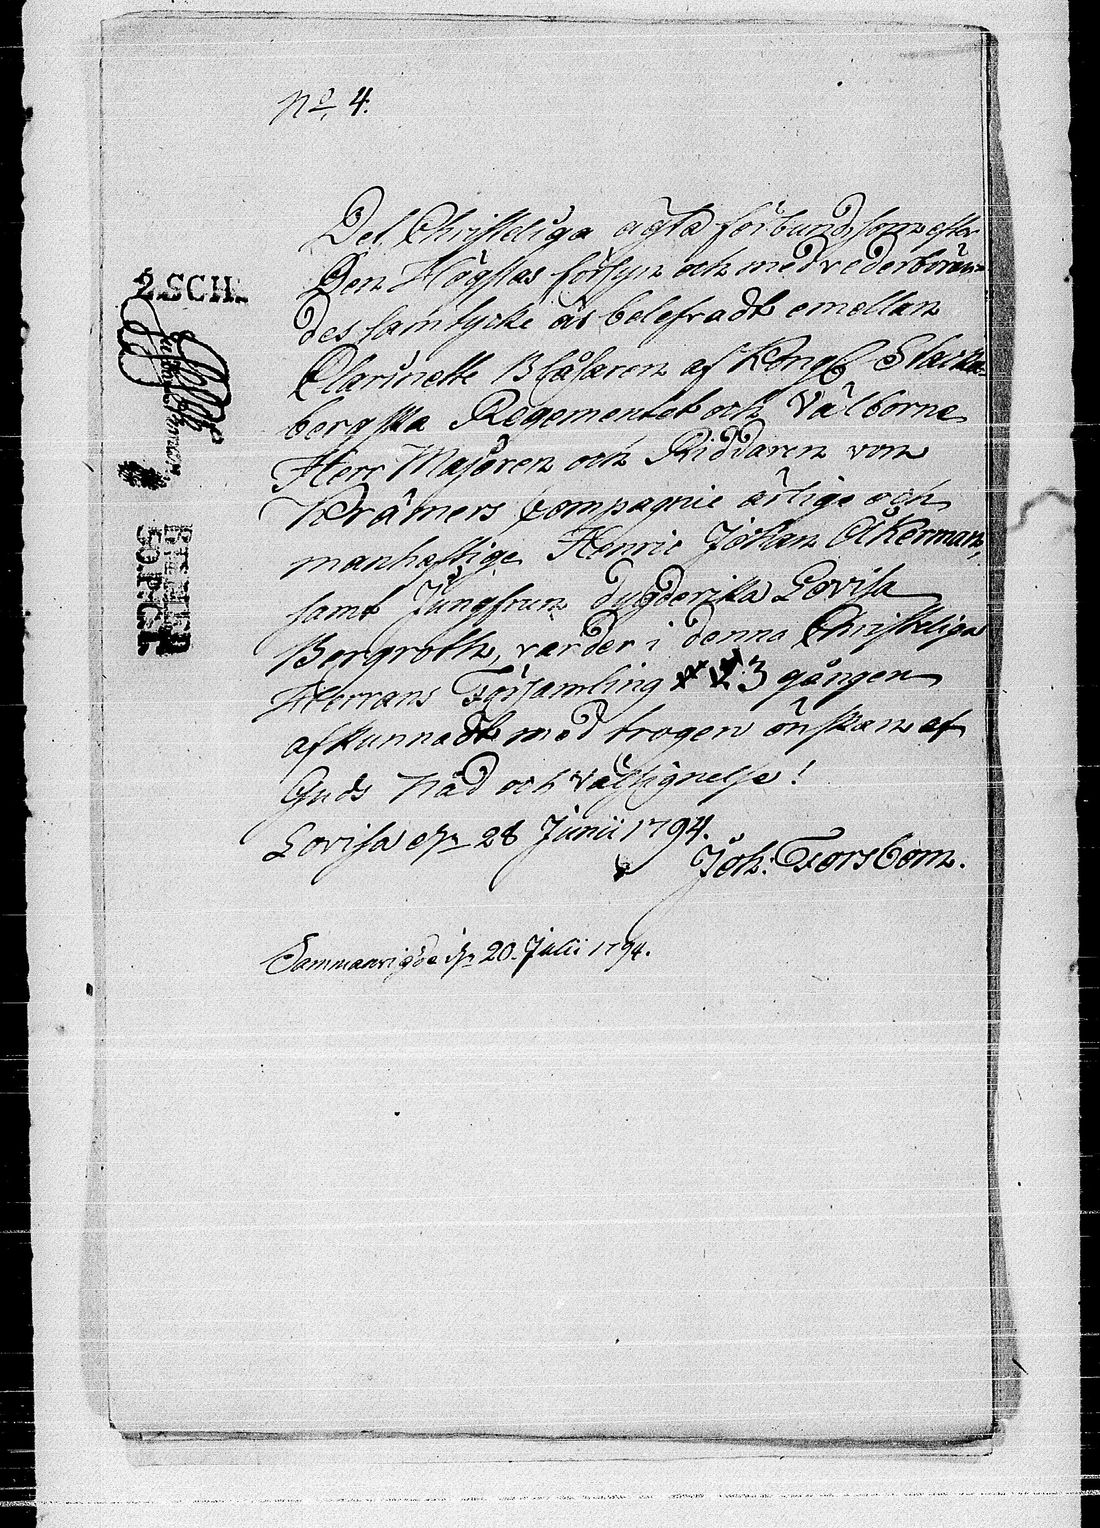 No. 4.
Det Christeliga ägta förbund, som efter
Den Högstas försyn och med vederböran=
des samtycke är belefvadt emellan
Clarinett Blåsaren af Kongl. Stacka=
bergska Regementet och Välborne
Herr Majoren och Riddaren von
Krämers Compagnie ärlige och
manhaftige Henric Johan Åkerman,
samt Jungfrun dygderika Lovisa
Bergroth, varder i denna Christeliga
Herrans Församling 3 gången
afkunnadt med trogen önskan af
Guds Nåd och Välsignelse!
Lovisa d. 28 Junii 1794.
Joh: Forsbom.
Sammanvigde d. 20. Julii 1794.
2.SCH.